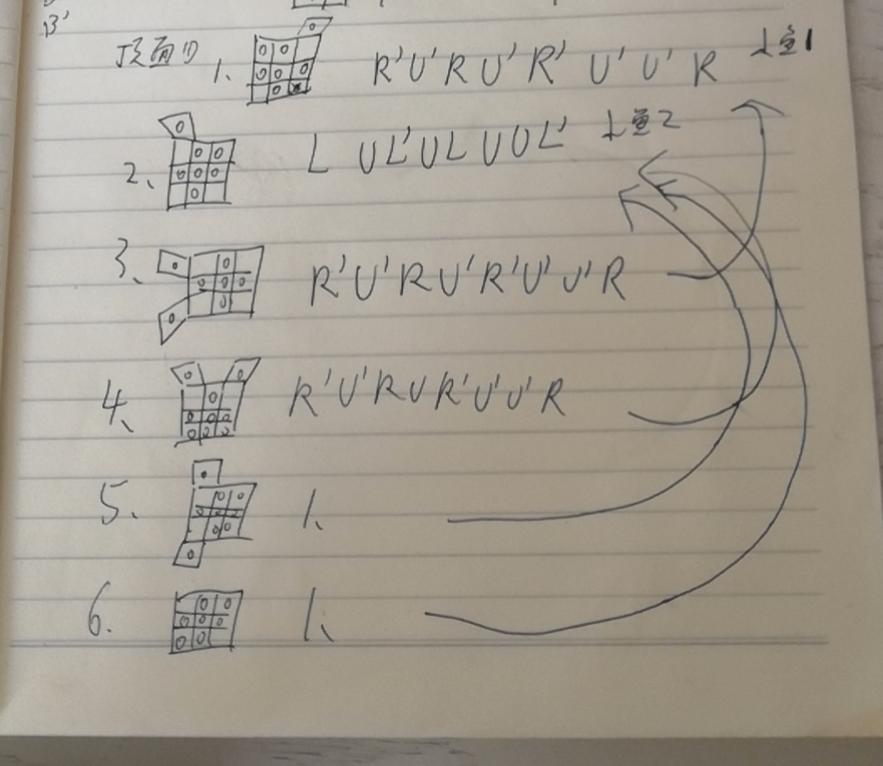 B'
顶面
1、 R'U'RU'R' U'U'R 上鱼1
2、 L UL'UL UUL' 上鱼2
3、 R'U'RU'R'U'U'R
4、 R'U'RUR'U'U'R
5、 1、
6. 1、